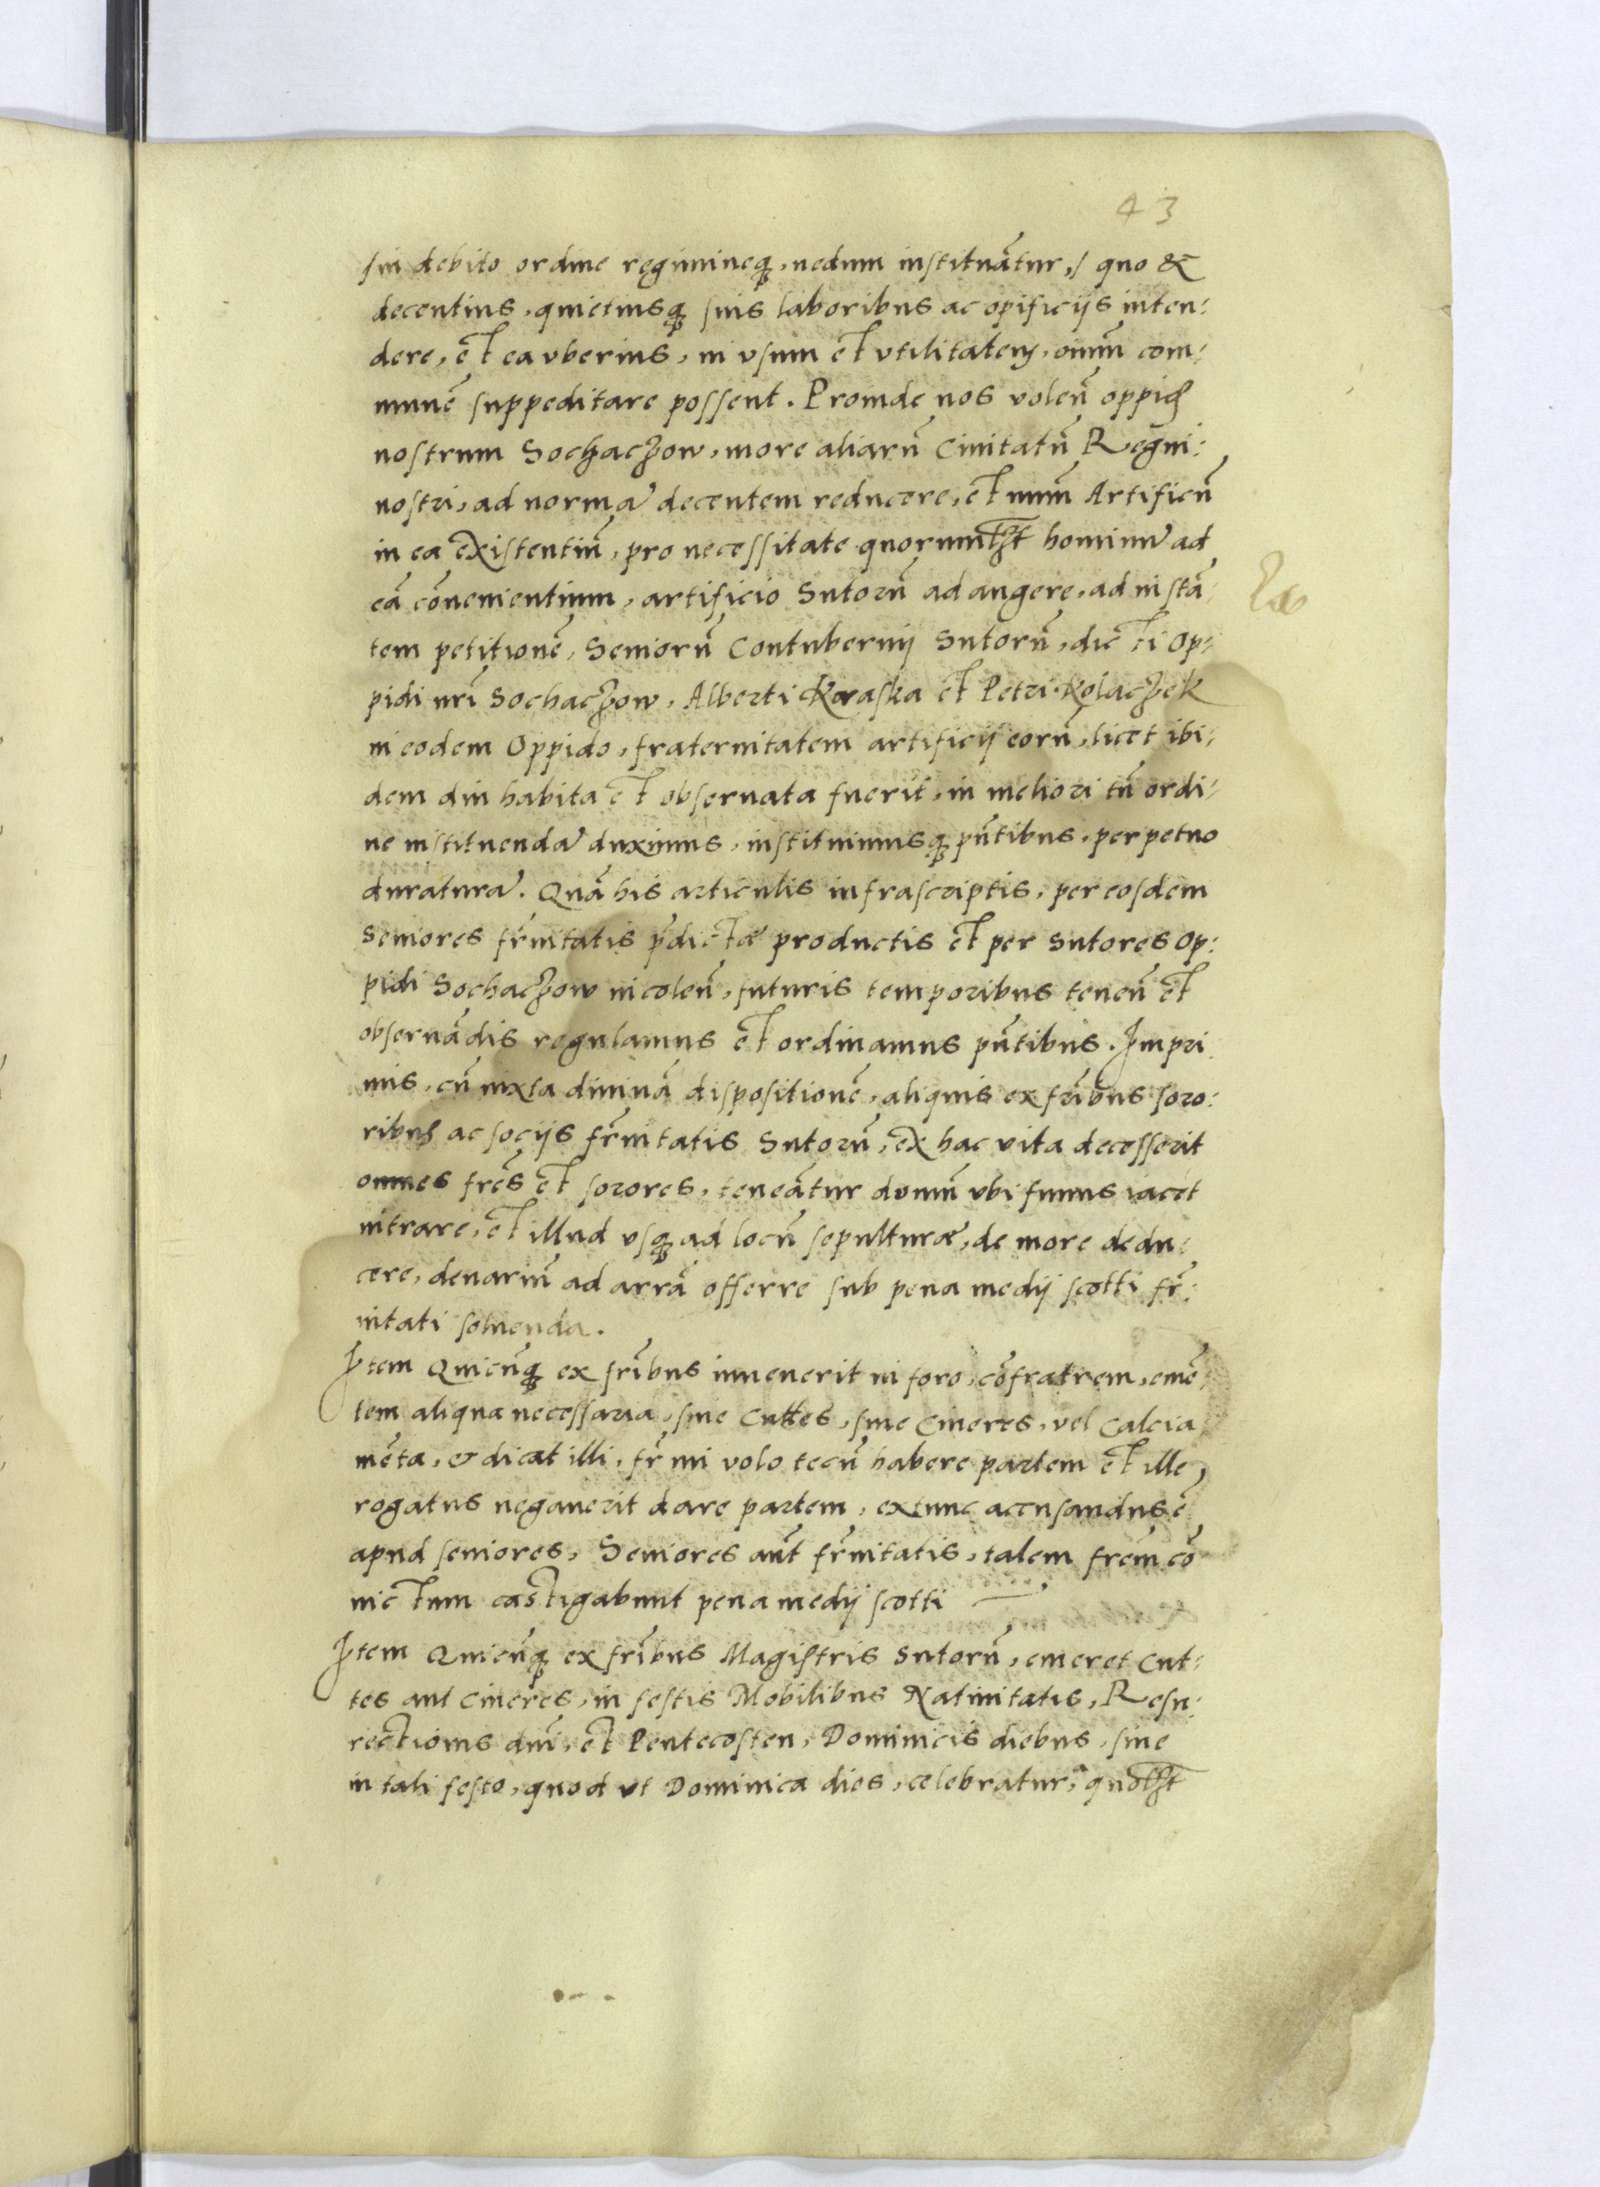 43
sui debito ordine regimineq3, nedum instituãtur, quo &
decentius, quietiusq3 suis laboribus ac opificijs inten:
dere, et ea vberius, in vsum et vtilitatem, oium com:
munẽ suppeditare possent. Proinde nos volen̄ oppid
nostrum Sochaczow, more aliarũ Ciuitatũ Regni:
nostri, ad normã decentem reducere, et num̃ Artificũ
in ea existentiũ, pro necessitate quorumlibt hominũ ad
eã cõuenientium, artificio Sutorũ adaugere, ad instã:
tem petitionẽ, Seniorũ Contubernij Sutorũ, dicti Op:
pidi nrĩ Sochaczow, Alberti Kraska et Petri Kolaczek
in eodem Oppido, fraternitatem artificij eorũ, licet ibi:
dem diu habita et obseruata fuerit, in meliori tñ ordi:
ne instituendã duximus, instituimusq3 pñtibus, perpetuo
duraturã. Quã his articulis infrascriptis, per eosdem
Seniores fr̃nitatis p̃dictæ productis et per Sutores Op:
pidi Sochaczow incolen̄, futuris temporibus tenen̄ et
obseruãdis regulamus et ordinamus pñtibus. Impri
mis, cũ iuxta diuinã dispositionẽ, aliquis ex fr̃ibus soro:
ribus ac socijs fr̃nitatis Sutorũ, ex hac vita decesserit
omnes frẽs et sorores, teneãtur domũ vbi funus iacet
intrare, et illud vsq3 ad locũ sepulturæ, de more dedu:
cere, denariũ ad arrã offerre sub pena medij scotti fr̃:
nitati soluenda.
Item Quicũq3 ex fr̃ibus inuenerit in foro, cõfratrem, emẽ:
tem aliqua necessaria, siue Cuttes, siue Cineres, vel Calcia
mẽta, & dicat illi, fr̃ mi volo tecũ habere partem et ille,
rogatus negauerit dare partem, extunc accusandus ẽ
apud seniores, Seniores aũt fr̃nitatis, talem frẽm cõ
uictum castigabunt pena medij scotti
Item Quicũq3 ex fr̃ibus Magistris Sutorũ, emeret Cut:
tes aut Cineres, in festis Mobilibus Natiuitatis, Resu:
rectionis dñi, et Pentecosten, Dominicis diebus, siue
in tali festo, quod vt Dominica dies, celebratur, quotlibt